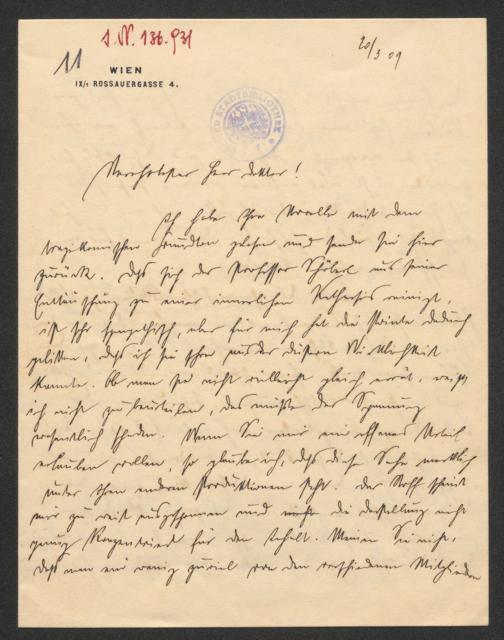 I. N. 136.931
20/3 09
11
WIEN
IX/1 ROSSAUERGASSE 4.
STADTBIBLIOTHEK
Verehrtester Herr Doktor!
Ich habe Ihre Novelle mit dem
tragikomischen gelesen und sende sie hier
zurück. Daß sich der Professor aus seiner
Enttäuschung zu einer innerlichen Katharsis reinigt,
ist sehr sympathisch, aber für mich hat die Pointe dadurch
gelitten, daß ich sie schon aus der düstern Wirklichkeit
kannte. Ob man sie nicht vielleicht gleich errät, weiß
ich nicht zu beurteilen, das müßte der Spannung
wesentlich schaden. Wenn Sie mir ein offenes Urteil
erlauben wollen, so glaube ich, daß diese Sache
unter Ihren anderen Produktionen steht. Der Stoff scheint
mir zu weit ausgesponnen und nicht die Darstellung nicht
genug konzentriert für den Inhalt. Meinen Sie nicht,
daß man ein wenig zuviel von den verschiedenen Mitgliedern